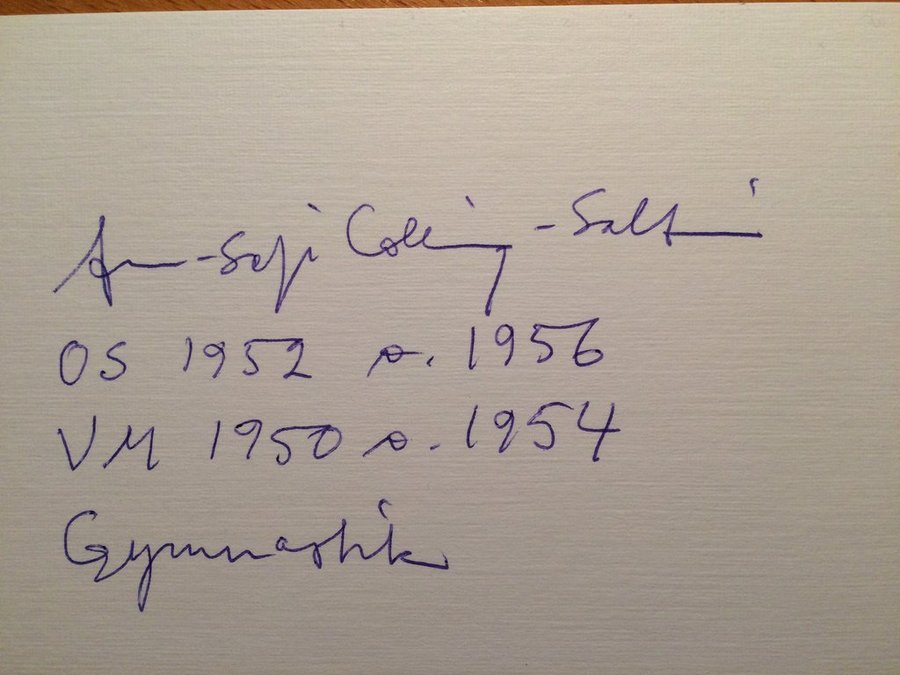 Ann-Sofi Colling-Saltin
OS 1952 o. 1956
VM 1950 o. 1954
Gymnastik